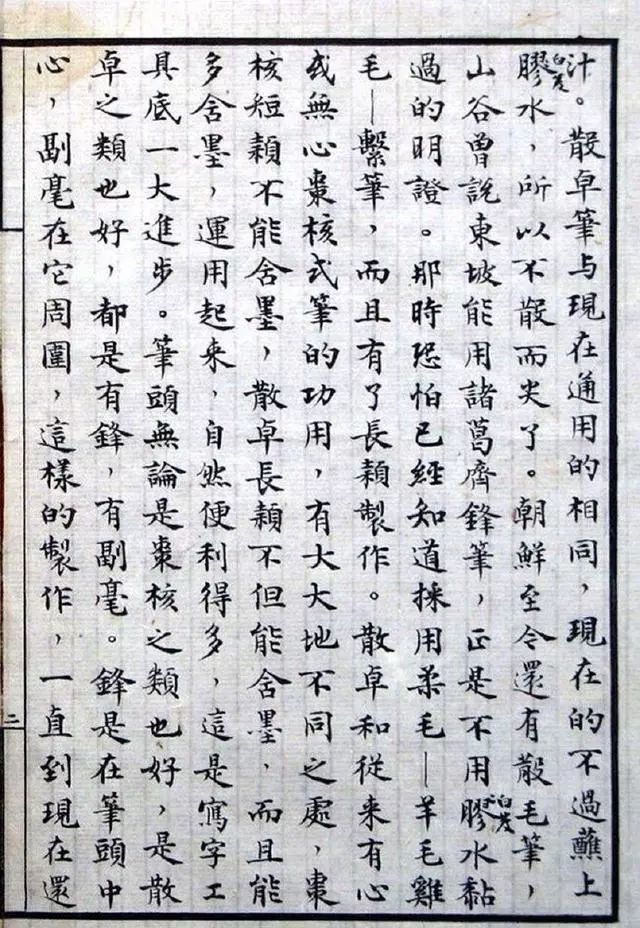 汁。散卓筆与現在通用的相同，現在的不過蘸上
白芨膠水，所以不散而尖了。朝鮮至今還有散毛筆，
山谷曾說東坡能用諸葛齊鋒筆，正是不用白芨膠水黏
過的明證。那時恐怕已經知道採用柔毛—羊毛雞
毛—繫筆，而且有了長穎製作。散卓和從来有心
或無心棗核式筆的功用，有大大地不同之處，棗
核短穎不能含墨，散卓長穎不但能含墨，而且能
多含墨，運用起来，自然便利得多，這是寫字工
具底一大進步。筆頭無論是棗核之類也好，是散
卓之類也好，都是有鋒，有副毫。鋒是在筆頭中
心，副毫在它周圍，這樣的製作，一直到現在還
二